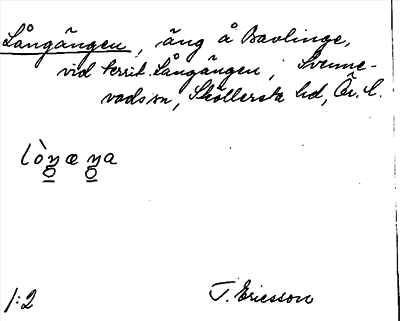 Långängen, äng å Bavlinge,
vid territ. Långängen, Svenne-
vads sn, Sköllersta hd, Ör. l.
lòŋæŋa
1:2 T. Ericsson